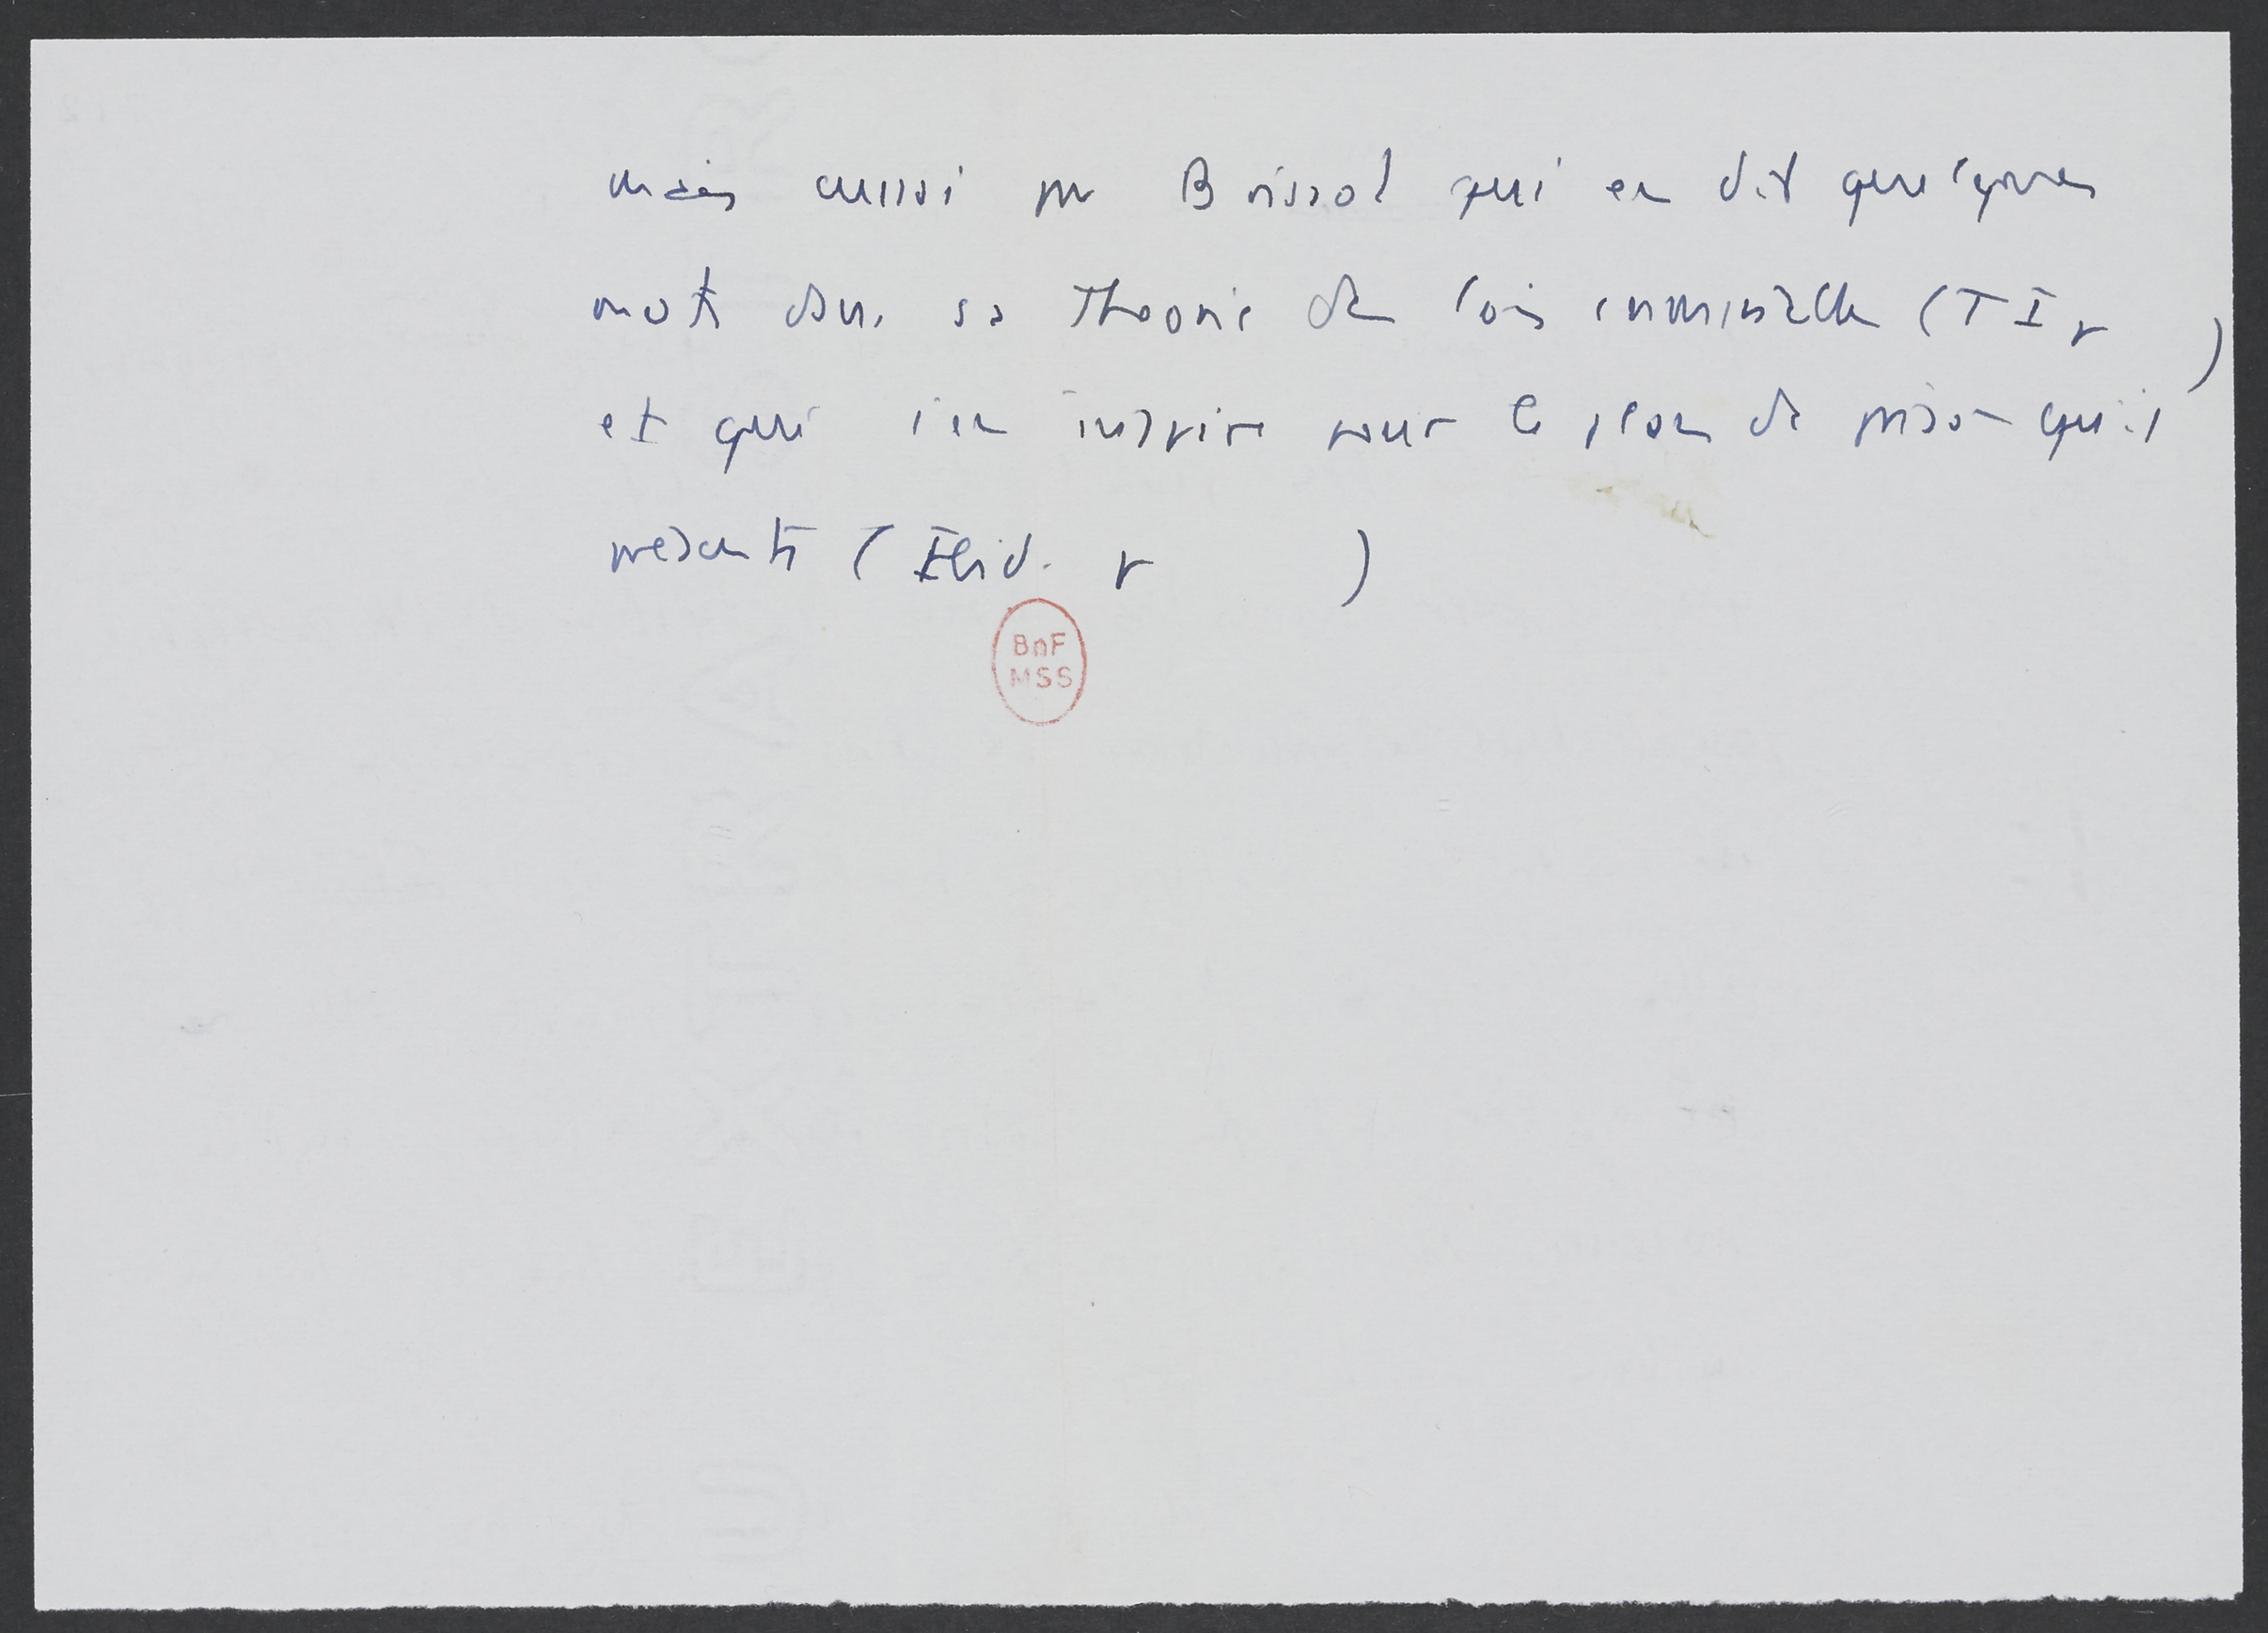 mais aussi par Brissot qui en dit quelques
mots dans sa Theorie des lois criminelles (T I p )
et qui s'en inspire pour le plan de prison qu'il
presente (Ibid. p )
BnF
MSS